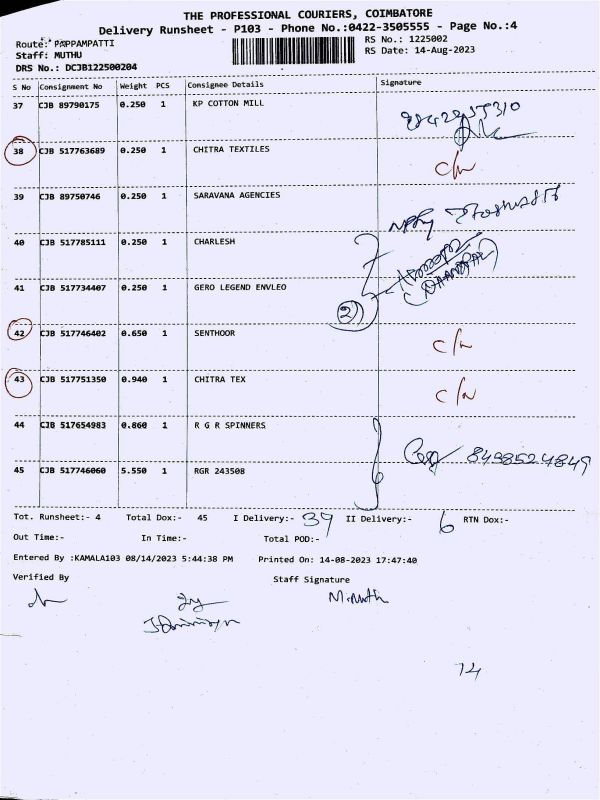 THE PROFESSIONAL COURIERS, COIMBATORE
Delivery Runsheet - P103 - Phone No.:0422-3505555 - Page No.:4
Route: PAPPAMPATTI
RS No.: 1225002
Staff: MUTHU
RS Date: 14-Aug-2023
DRS No.: DCJB122500204
S No Consignment No Weight PCS Consignee Details Signature
37 CJB 89790175 0.250 1 KP COTTON MILL
38 CJB 517763689 0.250 1 CHITRA TEXTILES
C/N
39 CJB 89750746 0.250 1 SARAVANA AGENCIES
40 CJB 517785111 0.250 1 CHARLESH
41 CJB 517734407 0.250 1 GERO LEGEND ENVLEO
2
42 CJB 517746402 0.650 1 SENTHOOR
C/N
43 CJB 517751350 0.940 1 CHITRA TEX
C/N
44 CJB 517654983 0.860 1 R G R SPINNERS
8498524849
45 CJB 517746060 5.550 1 RGR 243508
Tot. Runsheet:- 4 Total Dox:- 45 I Delivery:- 39 II Delivery:- 6 RTN Dox:-
Out Time:- In Time:- Total POD:-
Entered By :KAMALA103 08/14/2023 5:44:38 PM Printed On: 14-08-2023 17:47:40
Verified By Staff Signature
M.Muth
14